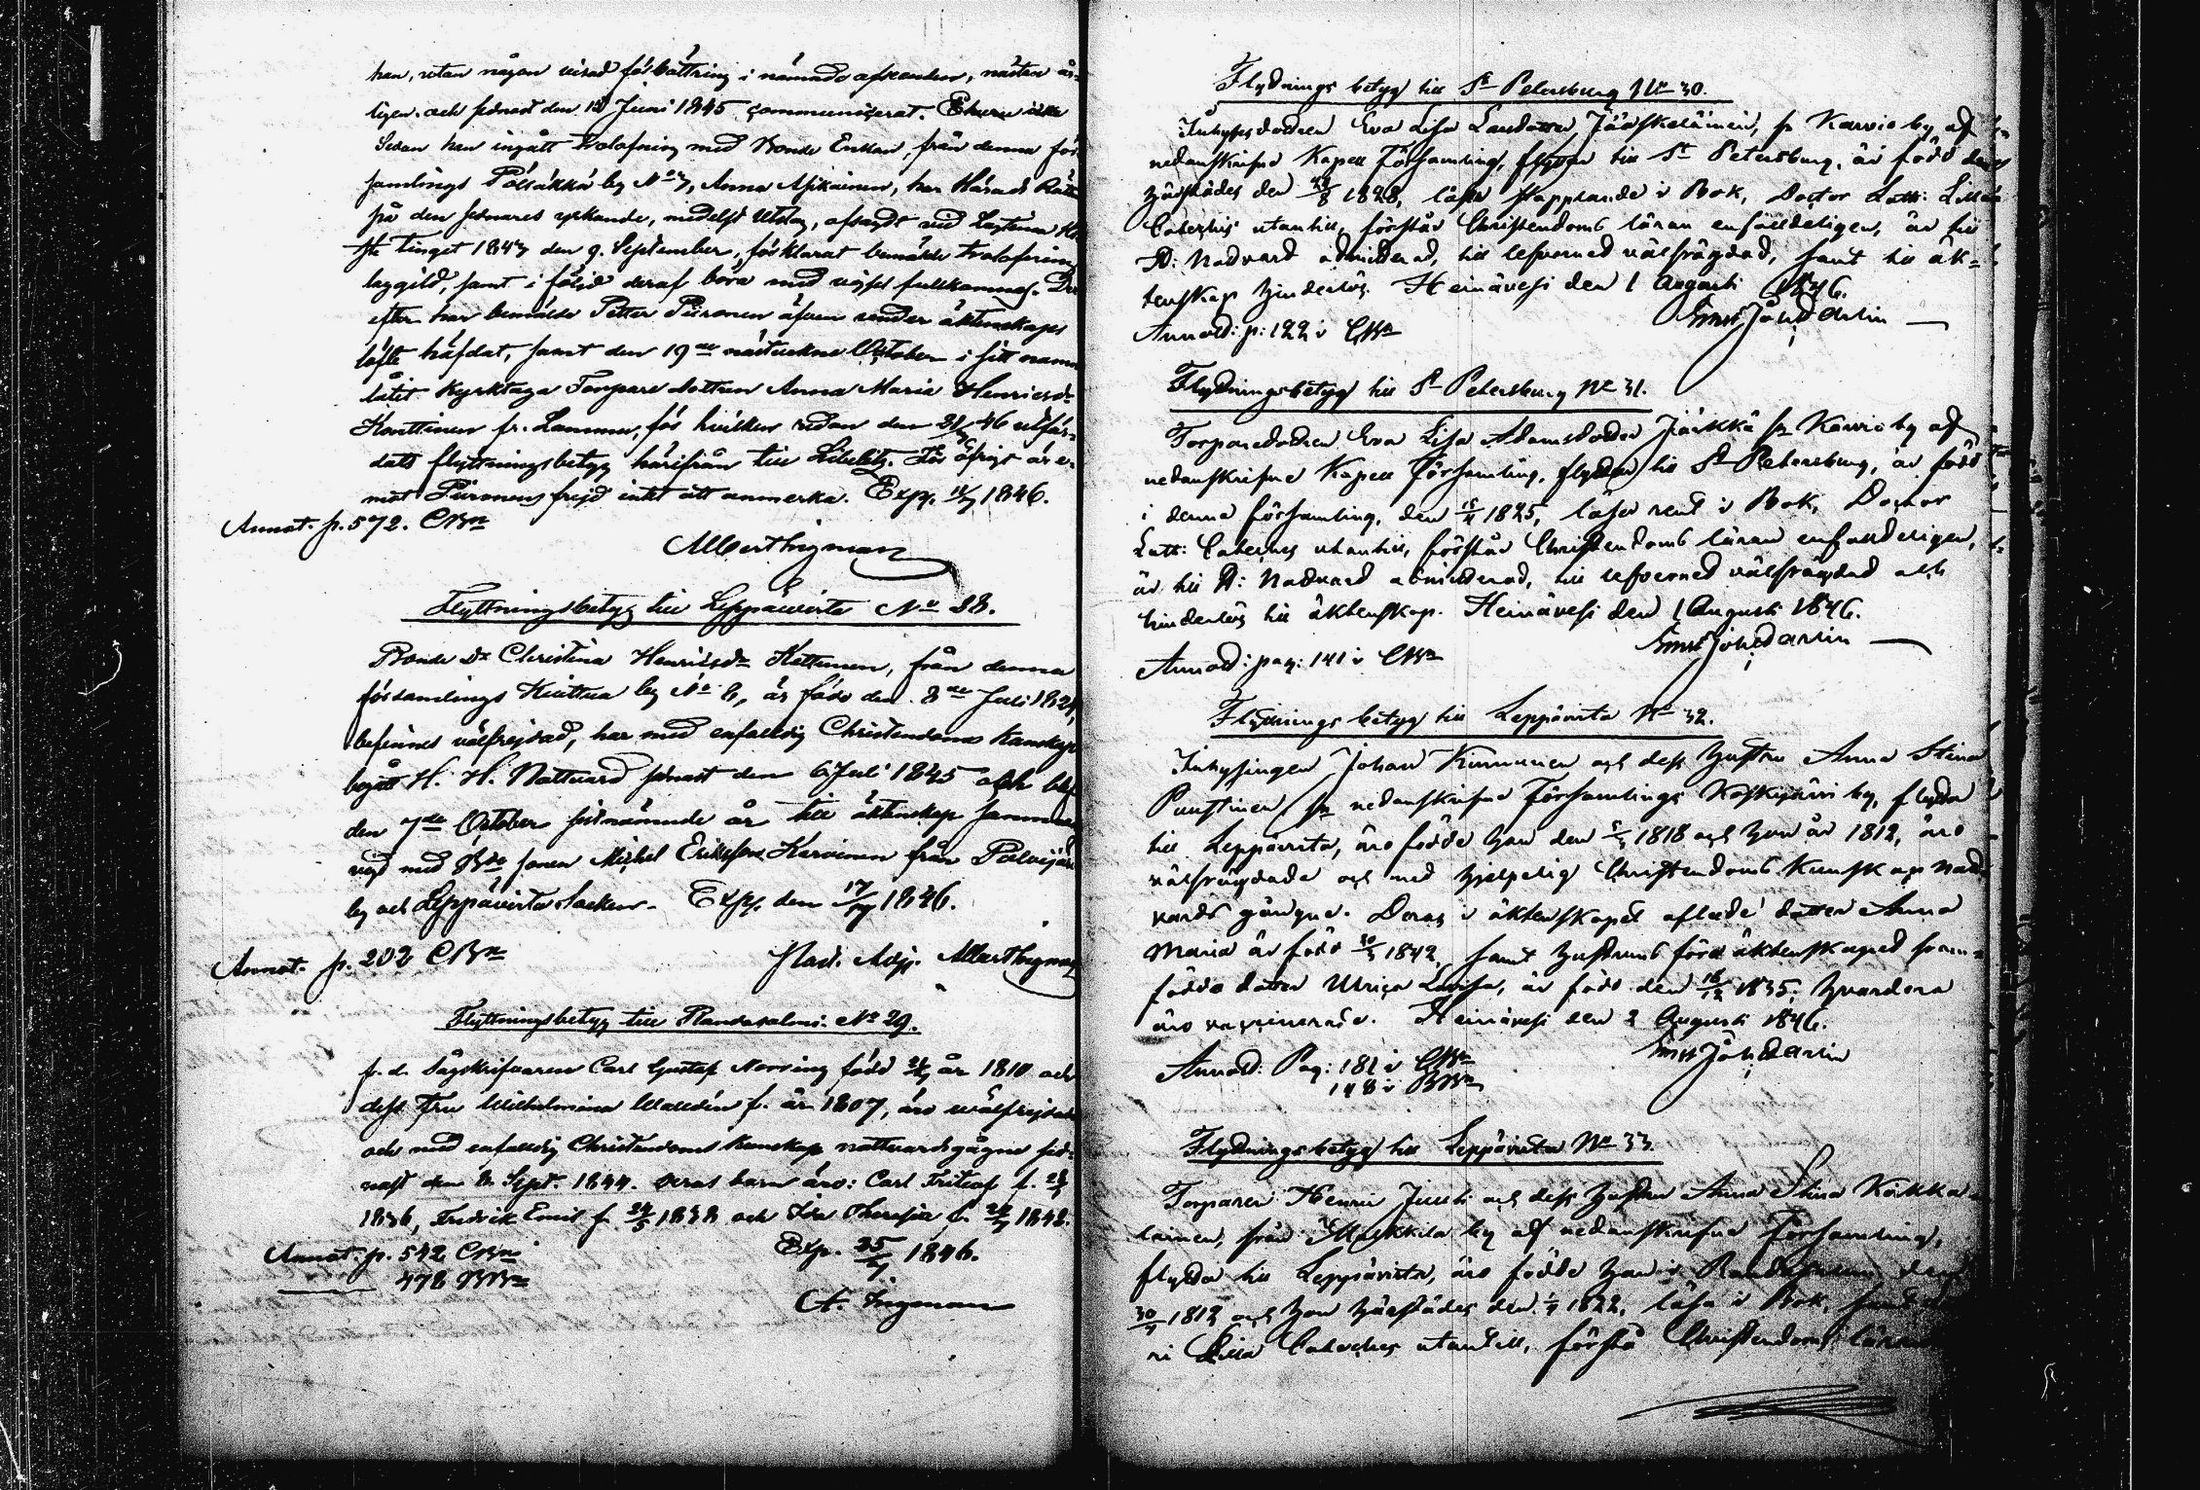 han, utan någon wisad förbättring i nämnde afseenden, nästan år-
ligen och sednast den 12 Juni 1845 communicerat. Ehuru
Sedan han ingått trolofning med Bonde Enkan, från denna för-
samlings Pölläkkä by No 7, Anna Asikainen, har Härads Rätten
på den sednares yrkande, medelst Utslag, afsagdt vid Lagtima Hö-
ste Tinget 1845 den 9 September, förklarat bemälde trolofning
laggild, samt i följd deraf böra med vigsel fullkomnas. Der-
efter har bemälde Petter Piironen äfven under äktenskaps
löfte häfdat, samt den 19de nästvekne October i sitt namn
låtit kyrktaga Torpare dottren Anna Maria Henricsdr
Konttinen fr. Lammu, för hvilken redan den 46 utfär-
dats flyttningsbetyg härifrån till Libelitz. För öfrigt är e-
mot Piironens frejd intet att anmerka. Exp. 1846.
Annot. p. 572. CBn
Albert Ingman
Flyttningsbetyg till Leppävirta No 28.
Bonde Dr Christina Henricsdr Kettunen, från denna
församlings Kiittua by No 6, är född den 8de Juli 1824,
befinnes välfrejdad, har med enfaldig Christendoms kunskap
begått H. H. Nattvard sednast den 6 Juli 1845 och blef
den 7de October sistnämnde år till äktenskap samman-
vigd med Bde sonen Michel Ericsson Karvinen från
by och Leppävirta socken. Exp. den 17/7 1846.
Annot. p. 202 CBn Past. Adj. Albert Ingman
Flyttningsbetyg till Randasalmi No 29.
f. d. Sågskrifvaren Carl Gustaf Norring född år 1810 och
dess Fru Wilhelmina Wallden f. år 1807, äro wälfrejdade
och med enfaldig Christendoms kunskap nattvardsgångne sed-
nast den 8 Sept. 1844. Deras barn äro: Carl Fritiof f.
1836, Fredrik Emil f. 1838 och Ida Theresia f. 1842.
Annot. p. 542 CBn Exp. 25/7 1846.
478 BBn
A. Ingman
Flyttnings betyg till St Petersburg No 30.
Inhysesdottren Eva Lisa Jääskeläinen, fr Karvio by af
nedanskrifne Kapell Församling, flyttar till St Petersburg, är född
härstädes den 1828, läser stapplande i Bok, Doctor Luth: Lilla
Cateches utantill, förstår Christendoms läran enfaldeligen, är till
H: Nadvard admitterad, till lefverned välfrägdad, samt till äk-
tenskap hinderlös. Heinävesi den 1 Augusti 1846.
Annoterad: p: 122 i CBn Ernst Joh: Darlin
Flyttningsbetyg till St Petersburg No 31.
Torparedottren Eva Lisa Adamsdotter Järkkä fr Karvio by af
nedanskrifne Kapell Församling, flyttar till St Petersburg, är född
i denna församling, den 1825, läser rent i Bok, Doctor
Luth: Cateches utantill, förstår Christendoms läran enfaldeligen,
är till H: Nadvard admitterad, till lefverned välfrägdad och
hinderlös till äktenskap. Heinävesi den 1 Augusti 1846.
Annoterad: pag: 141 i CBn Ernst Joh: Darlin
Flyttnings betyg till Leppävirta No 32.
Inhysingen Johan Kinnunen och dess hustru Anna Stina
Puustinen, fr nedanskrifne Församlings Koskijärvi by, flytta
till Leppävirta, äro födde han den 1818 och hon år 1812, äro
välfrägdade och med hjelpelig Christendoms Kunskap Natt-
vards gångne. Deras i äktenskapet aflade dotter Anna
Maria är född 1842, samt hustruns före äktenskapet fram-
födda dotter Ulrica Lovisa, är född den 16/12 1835; hvardera
äro vaccinerade. Heinävesi den 2 Augusti 1846.
Annoterad: Pag: 181 i CBn Ernst Joh: Darlin
148 i BBn
Flyttnings betyg till Leppävirta No 33.
Torparen Henric Juuti och dess hustru Anna Stina Kokka-
lainen, från by af nedanskrifne Församling,
flytta till Leppävirta, äro födde han i Randasalmi den
1812 och hon härstädes den 1822, läsa i Bok, samt
ri Lilla Cateches utantill, förstå Christendoms läran